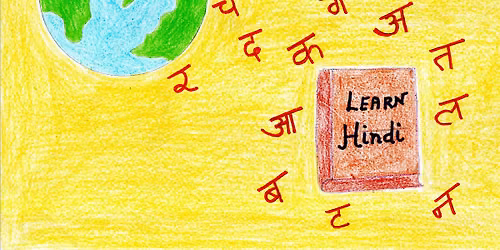 च
ग
अ
द
क
त
र
LEARN
Hindi
ल
आ
ब
ट
न